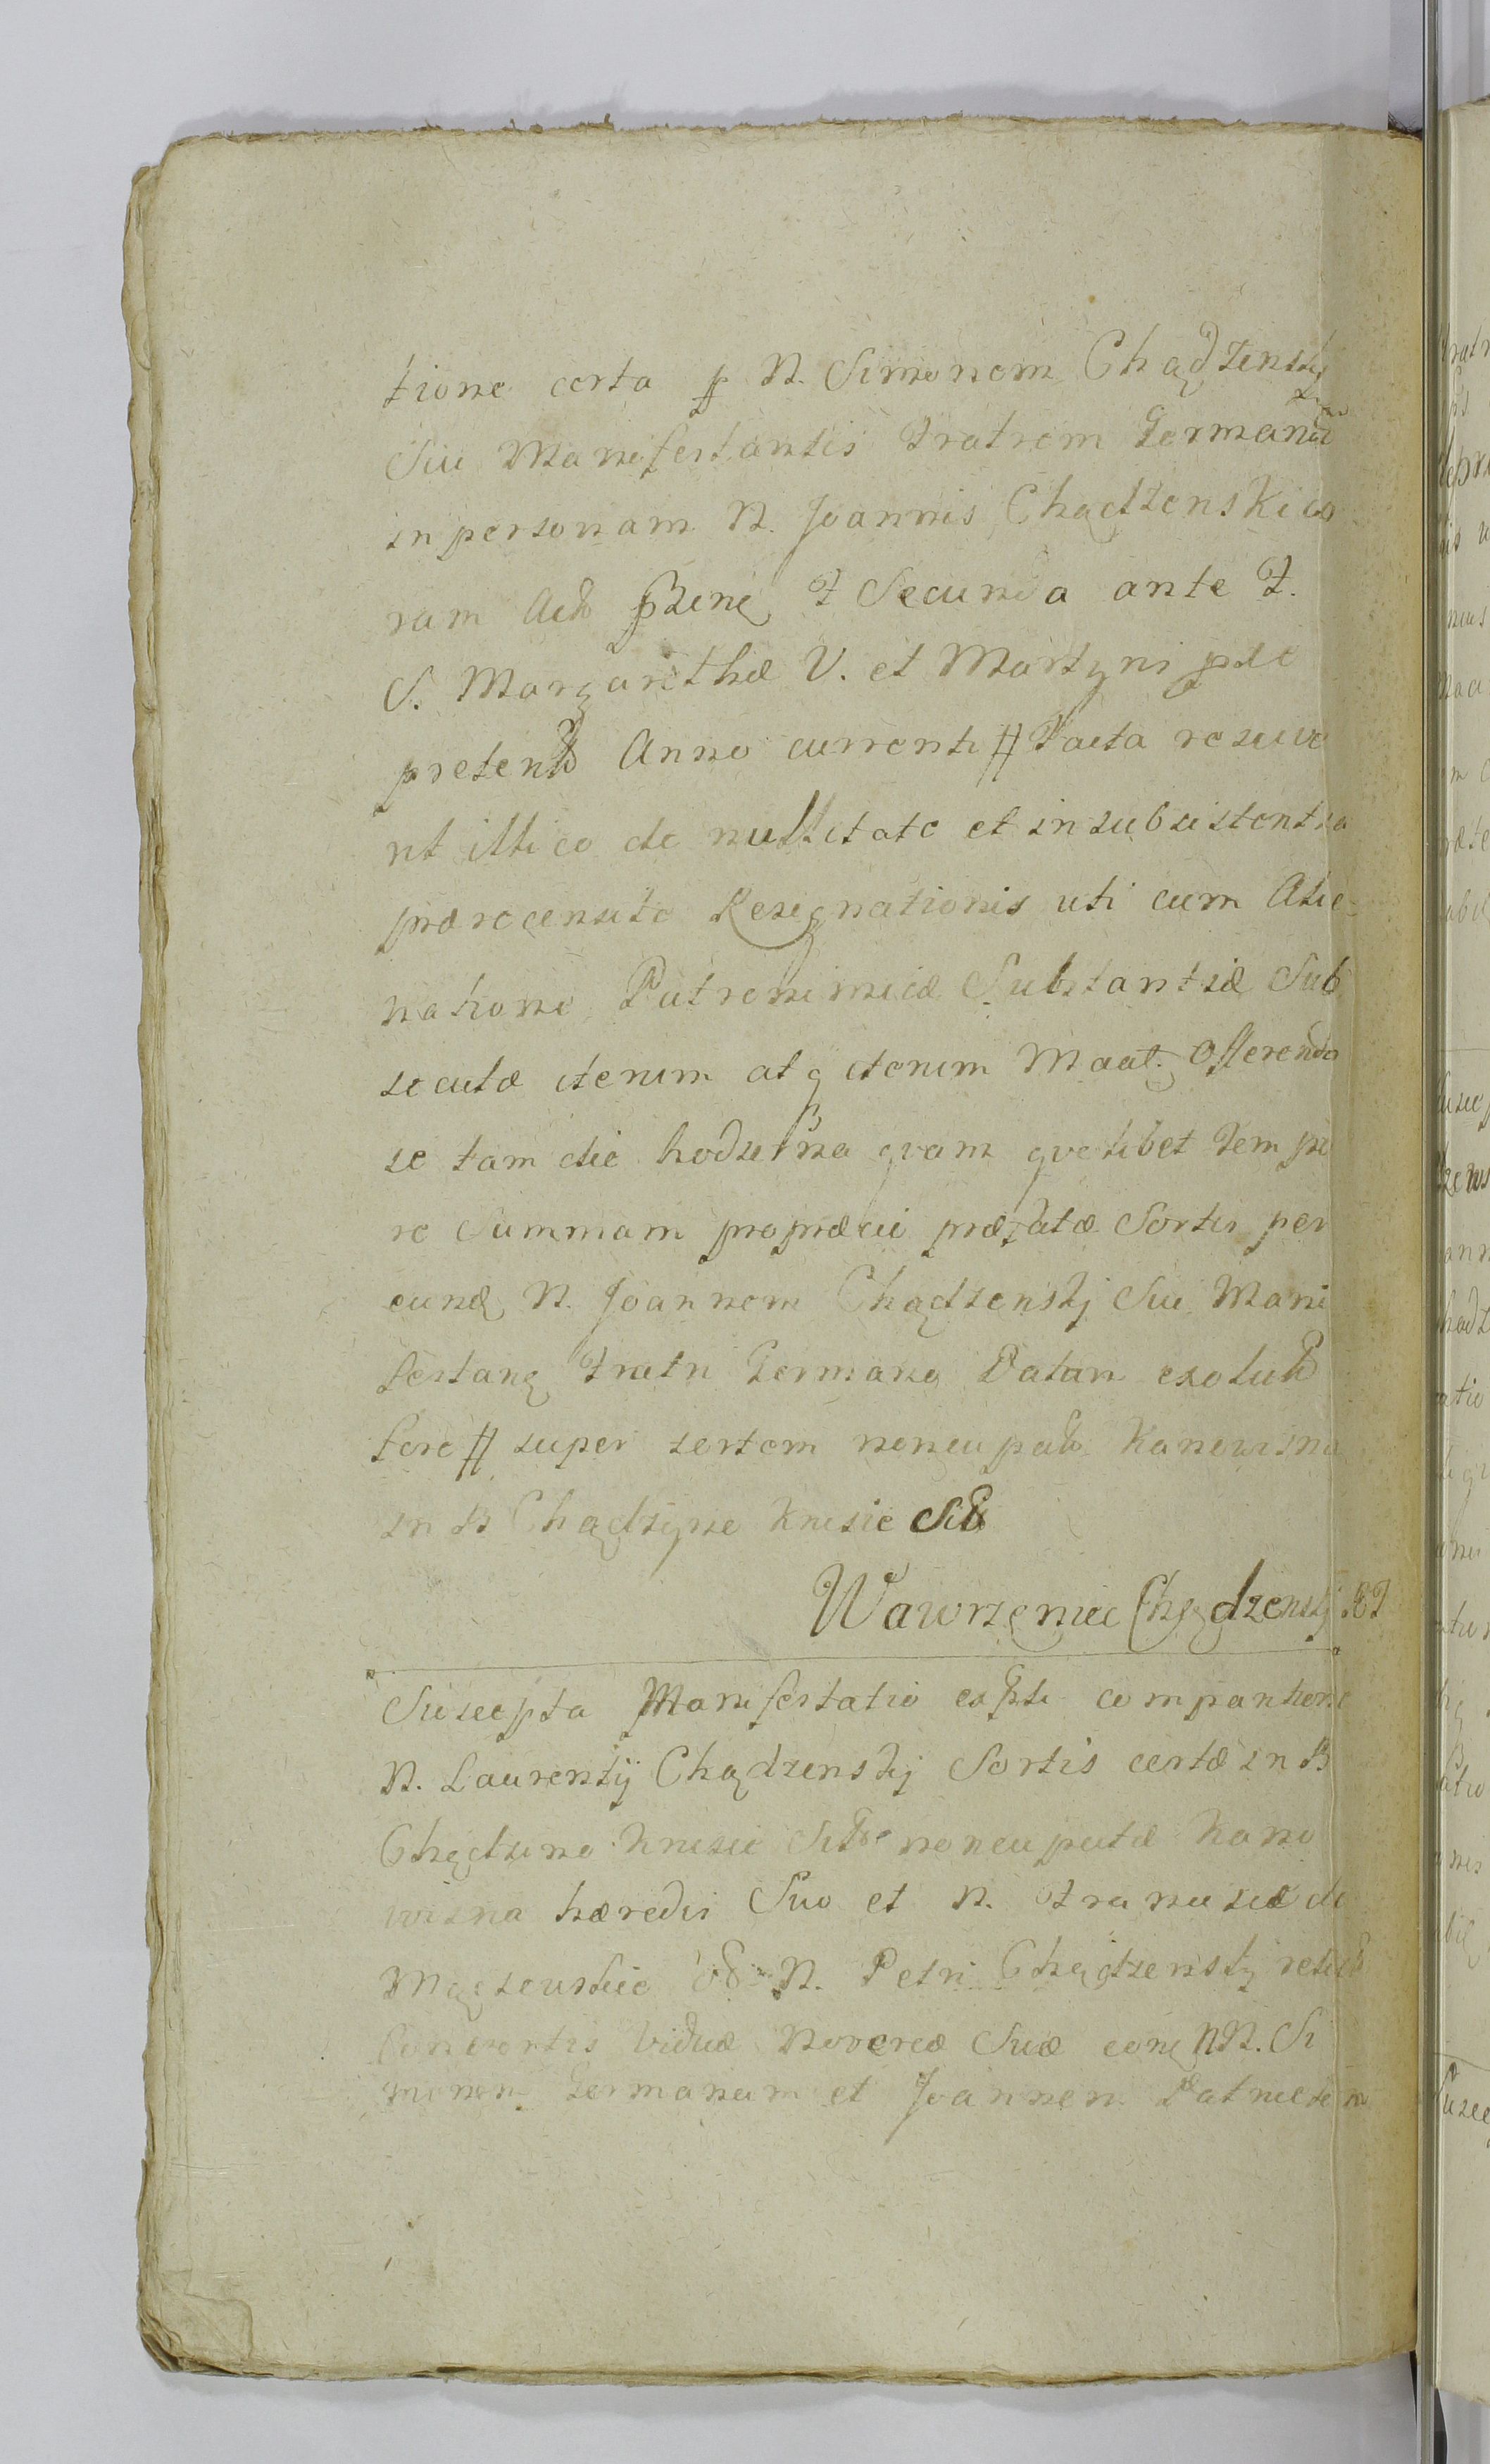 tione certa p N. Simonem Chądzenskj
Sui Manifestantis Fratrem Germanū
in personam N. Joannis Chądzenski co
ram Actō F Secunda ante F.
S. Margarethæ V. et Martyni
pretentō Anno currenti # Facta rescive
nt illico de nullitate et insubsistentia
prærecensitæ Resignationis uti cum Alie
natione Patrimonicæ Substantiæ Sub
secutæ iterum atq iterum Maāt. Offerendo
se tam die hodierna qvam qvolibet Tempo
re Summam pro præcii præfatæ Sortis per
eund N. Joannem Chądzenskj Sui Mani
festanę Fratri Germano Datam exolutū
fore # super sortem noncupatō Kanowizna
in B Chądzyne Kusie Sitō
Wawrzeniec Chądzenskj
Suscepta Manifestatio ex pte comparitione
N. Laurentij Chądzenskij Sortis certæ in B
Chądzino Kusie noncupatæ Kano
wizna hæredis Suo et N. Franciscæ de
N. Petri Chądzenskj relictō
Consortis viduæ Novercæ Suæ NN. Si
monem Germanum et Joannem Patruelem